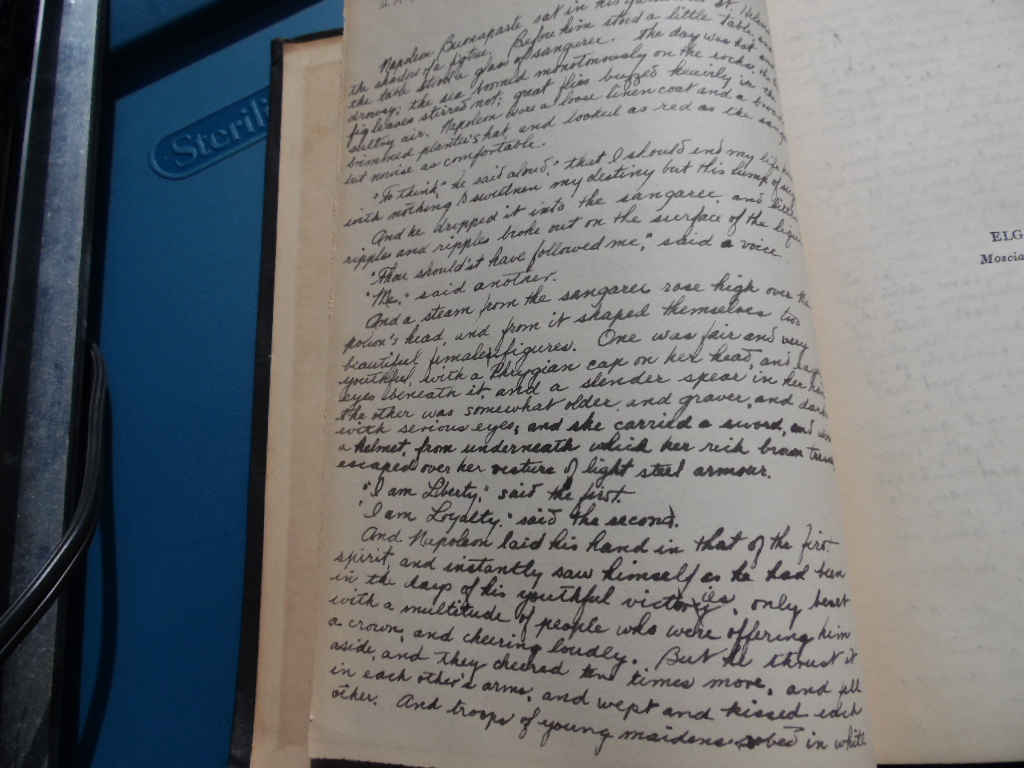 Napoleon Buonaparte sat in his garden at St. Helena
the shadow of a figtree. Before him stood a little table, and
the table stood a glass of sangaree. The day was hot and
drowsy; the sea boomed monotonously on the rocks; the
figleaves stirred not; great flies buzzed heavily in the
sultry air. Napoleon wore a loose linen coat and a broad
brimmed planter's hat and looked as red as the sang
but nowise as comfortable.
"To think," he said aloud, "that I should end my life
with nothing to sweeten my destiny but this lump of sug
And he dropped it into the sangaree, and little
ripples and ripples broke out on the surface of the liqu
"Thou should'st have followed me," said a voice.
"Me," said another.
And a steam from the sangaree rose high over Na
poleon's head, and from it shaped themselves two
beautiful female figures. One was fair and very
youthful, with a Phrygian cap on her head, and eager
eyes beneath it, and a slender spear in her hand
The other was somewhat older, and graver, and dark
with serious eyes; and she carried a sword, and wore
a helmet, from underneath which her rich brown tresses
escaped over her vesture of light steel armour.
"I am Liberty," said the first.
"I am Loyalty," said the second.
And Napoleon laid his hand in that of the first
spirit, and instantly saw himself as he had been
in the days of his youthful victories, only beset
with a multitude of people who were offering him
a crown, and cheering loudly. But he thrust it
aside, and they cheered ten times more, and fell
in each other's arms, and wept and kissed each
other. And troops of young maidens robed in white
Sterili
ELG
Moscia